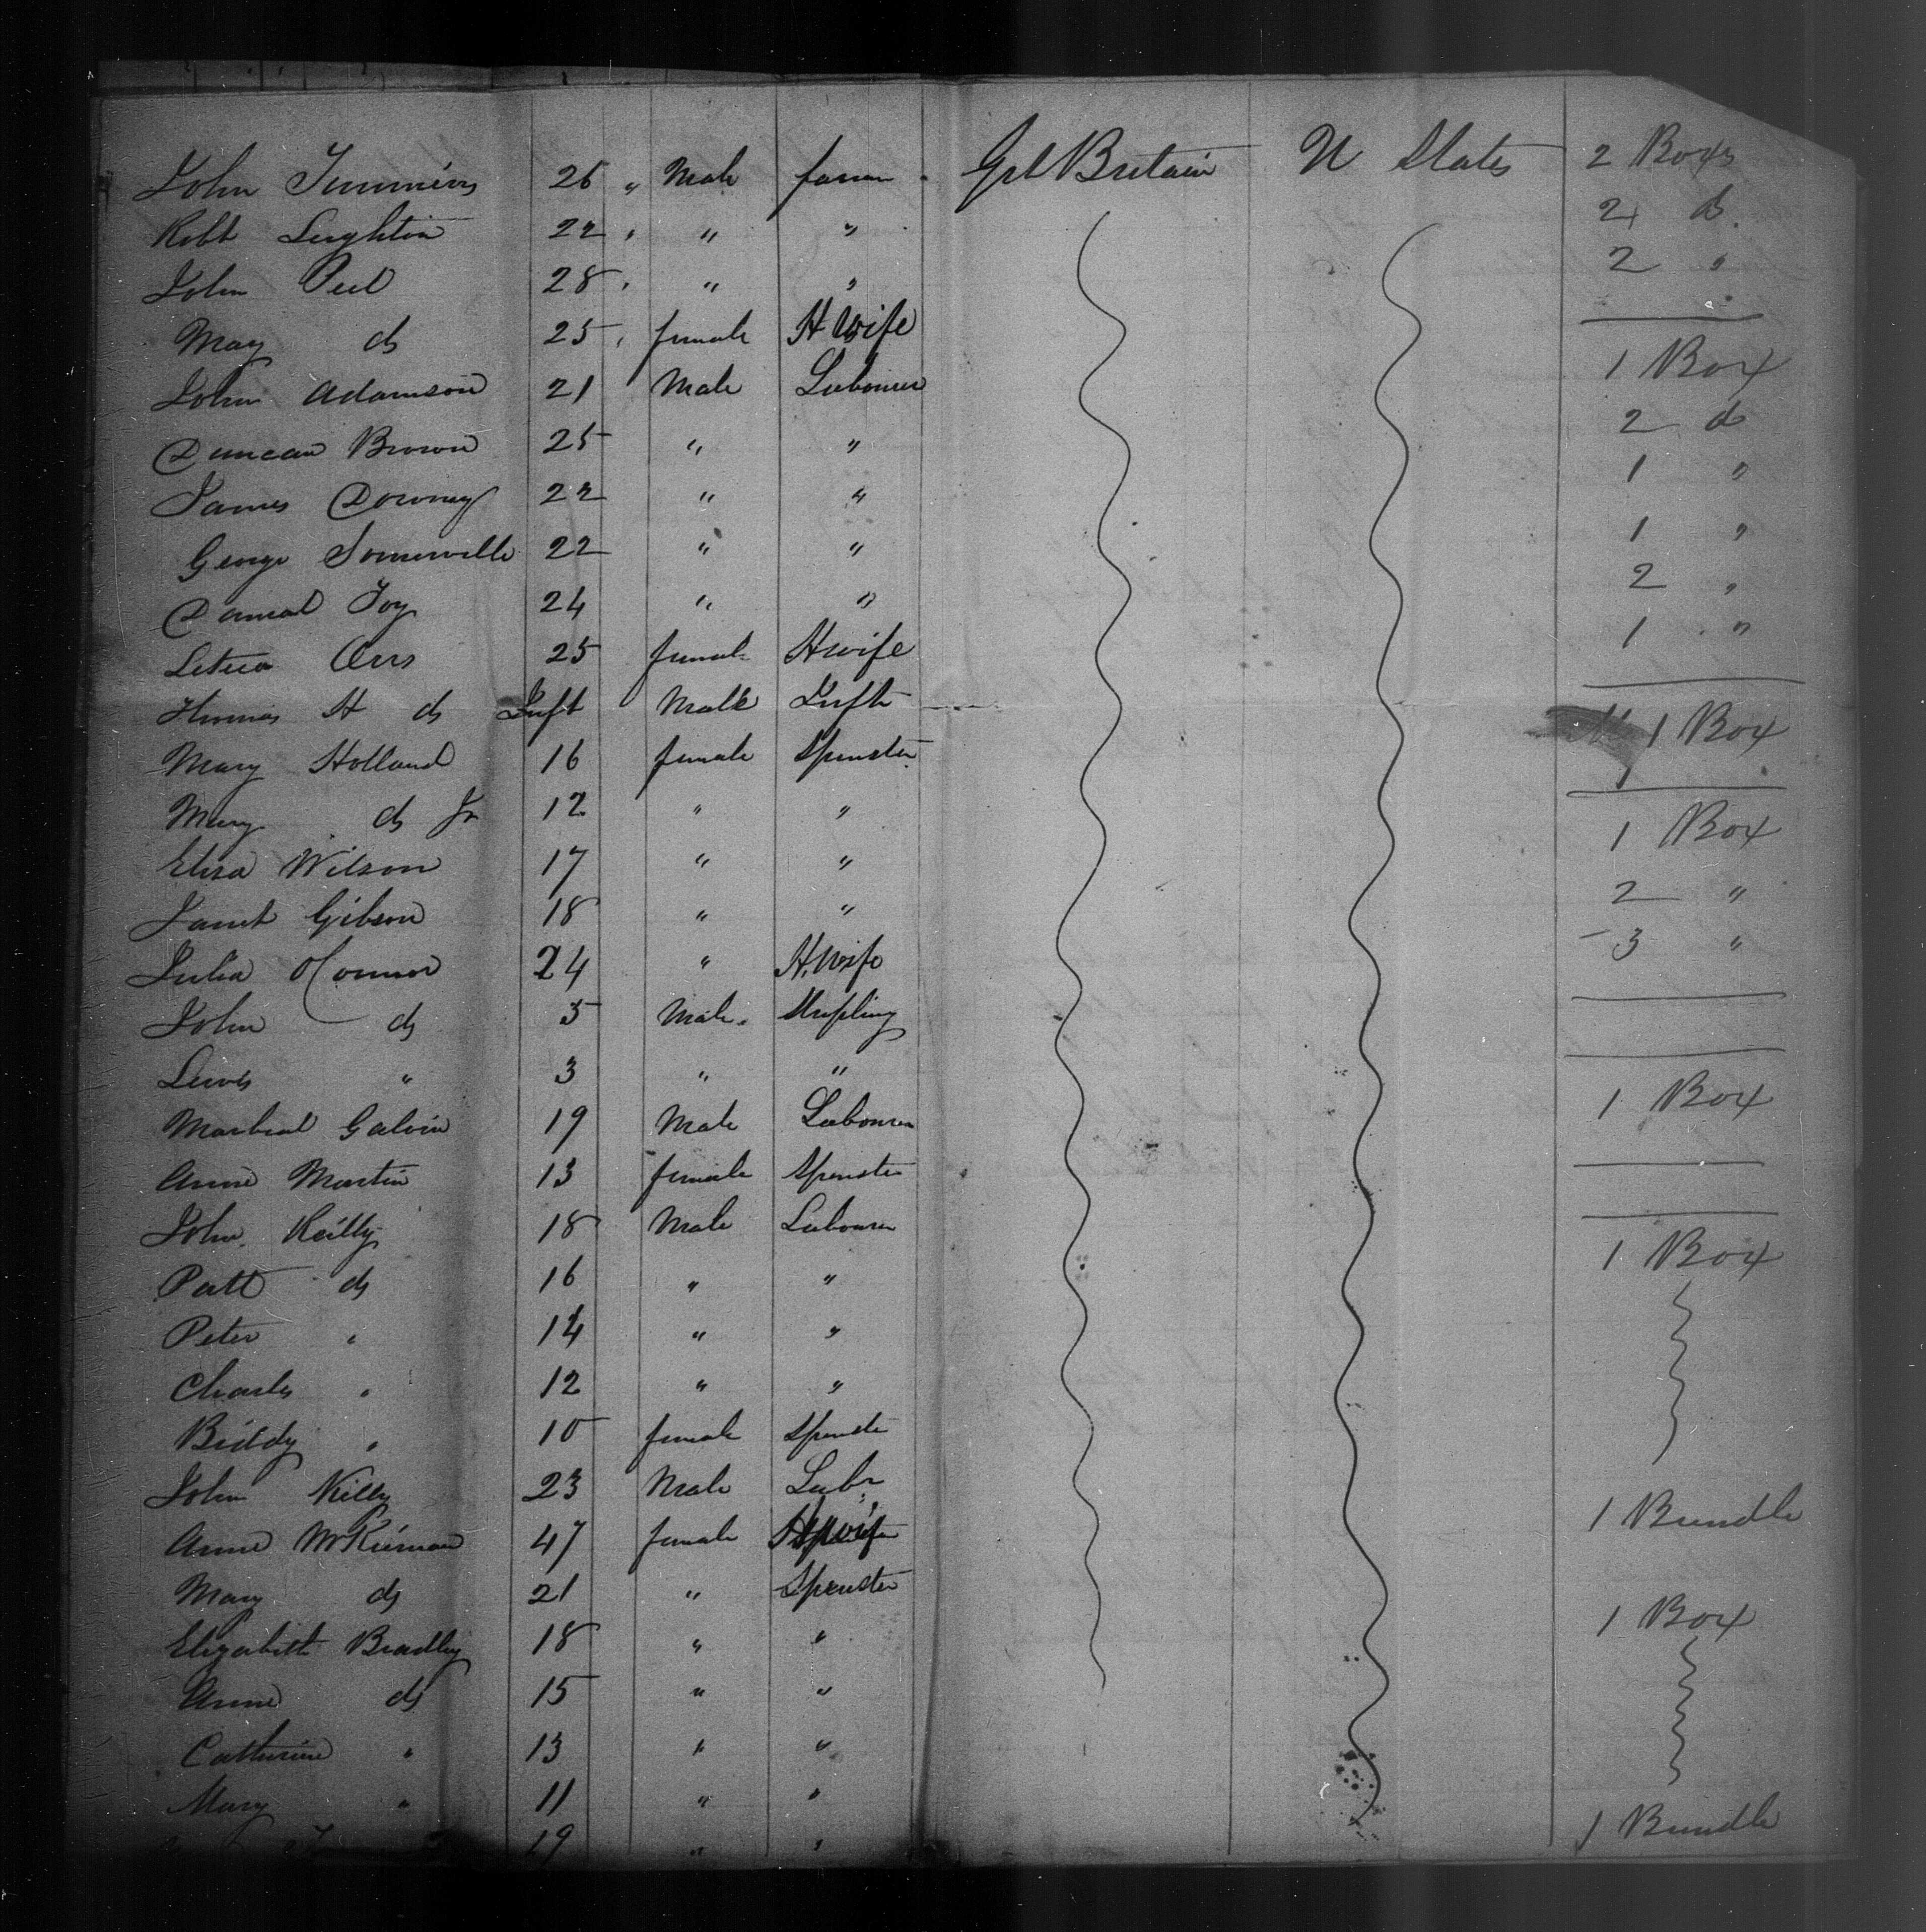 John Timmins 26 " Male farmer Grt Britain U States 2 Boxes
Robt Leighton 22 " " " 2 do
John Peel 28 " " " 2 "
Mary do 25 " female H Wife
John Adamson 21 Male Labourer 1 Box
Duncan Brown 25 " " 2 do
James Downey 22 " " 1 "
George Somerville 22 " " 1 "
Daniel Foy 24 " " 2 "
Leticia Orrs 25 female H wife 1 "
Thomas H do Inft Male Inft
Mary Holland 16 female Spinster 1 Box
Mary do Jr 12 " "
Eliza Wilson 17 " " 1 Box
Janet Gibson 18 " " 2 "
Julia O'Connor 24 " H. Wife 3 "
John do 5 Male Stripling
Lewis " 3 " "
Galvin 19 Male Labourer 1 Box
Anne Martin 13 female Spinster
John Reilly 18 Male Labourer
Patt do 16 " " 1 Box
Peter " 14 " "
Charles " 12 " "
Biddy " 10 female Spinster
John Killy 23 Male Labr
Anne McKiernan 47 female H Wife 1 Bundle
Mary do 21 " Spinster
Elizabeth Bradley 18 " " 1 Box
Anne do 15 " "
Catherine " 13 " "
Mary " 11 " "
19 " " 1 Bundle